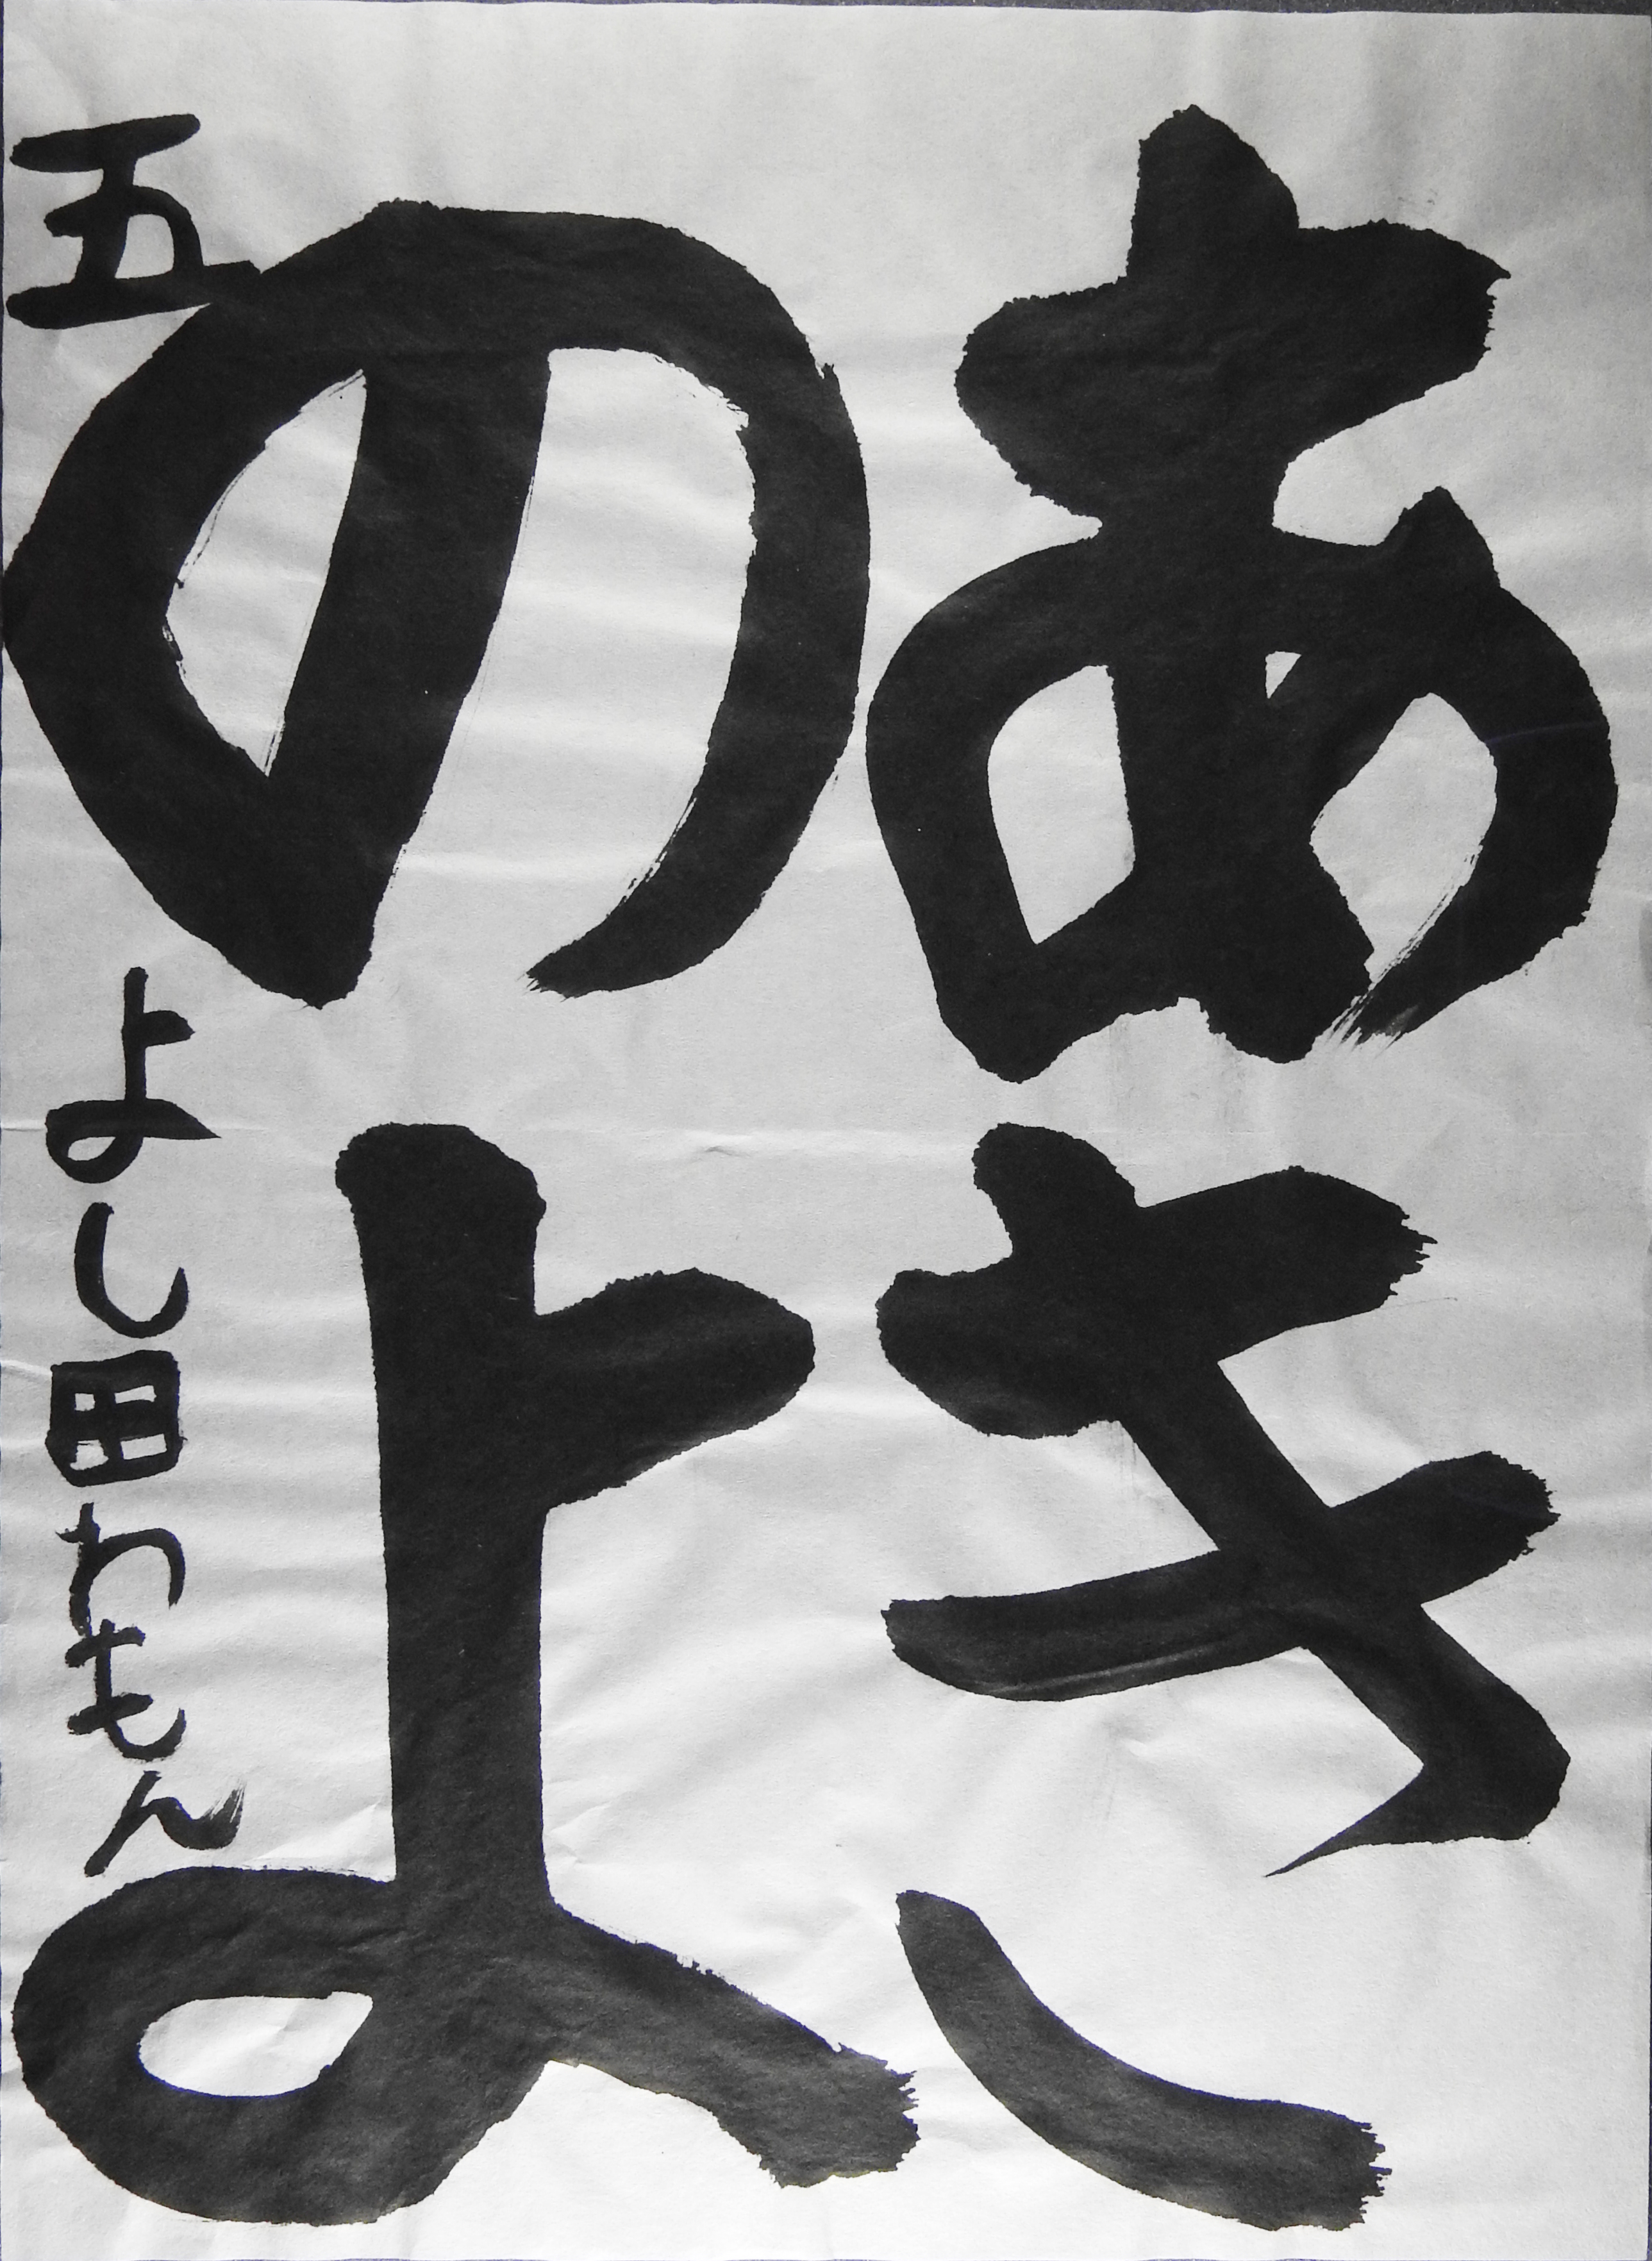 あき
のよ
五 よし田わもん